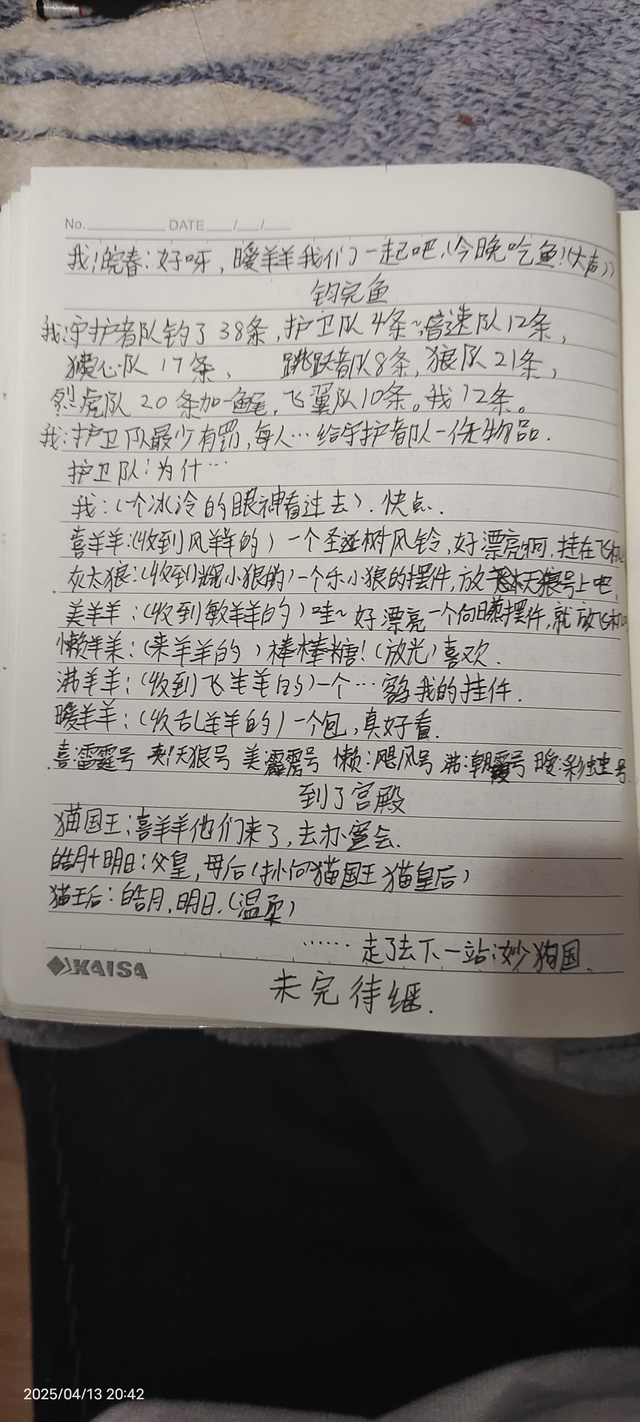 No. DATE / /
我!皖春:好呀,暖羊羊我们一起吧,(今晚吃鱼!(大声))
钓完鱼
我:守护者队钓了38条,护卫队4条~倍速队12条,
獴心队 17条、 跳跃者队8条,狼队21条,
烈虎队 20条加一鱼尾,飞翼队10条。我12条。
我:护卫队最少有罚,每人…给守护者队一件物品.
护卫队:为什…
我:(一个冰冷的眼神看过去).快点.
喜羊羊:(收到风羊羊的)一个圣诞树风铃,好漂亮啊,挂在飞机
灰太狼:(收到 小狼的)一个乐小狼的摆件,放 天狼号上吧,
美羊羊:(收到敏羊羊的)哇~好漂亮一个向日葵摆件,就放飞机
懒羊羊:(来羊羊的)棒棒糖!(放光)喜欢.
沸羊羊:(收到飞羊羊的)一个… 我的挂件.
暖羊羊:(收乱羊羊的)一个包,真好看.
喜:雷霆号 灰:天狼号 美:霹雳号 懒:飓风号 沸:朝霞号 暖:彩虹号
到了宫殿
猫国王:喜羊羊他们来了,去办宴会.
皓月+明日:父皇,母后(扑向猫国王 猫皇后)
猫王后:皓月,明日.(温柔)
……走了去下一站:妙狗国.
KAISA
未完待继.
2025/04/13 20:42